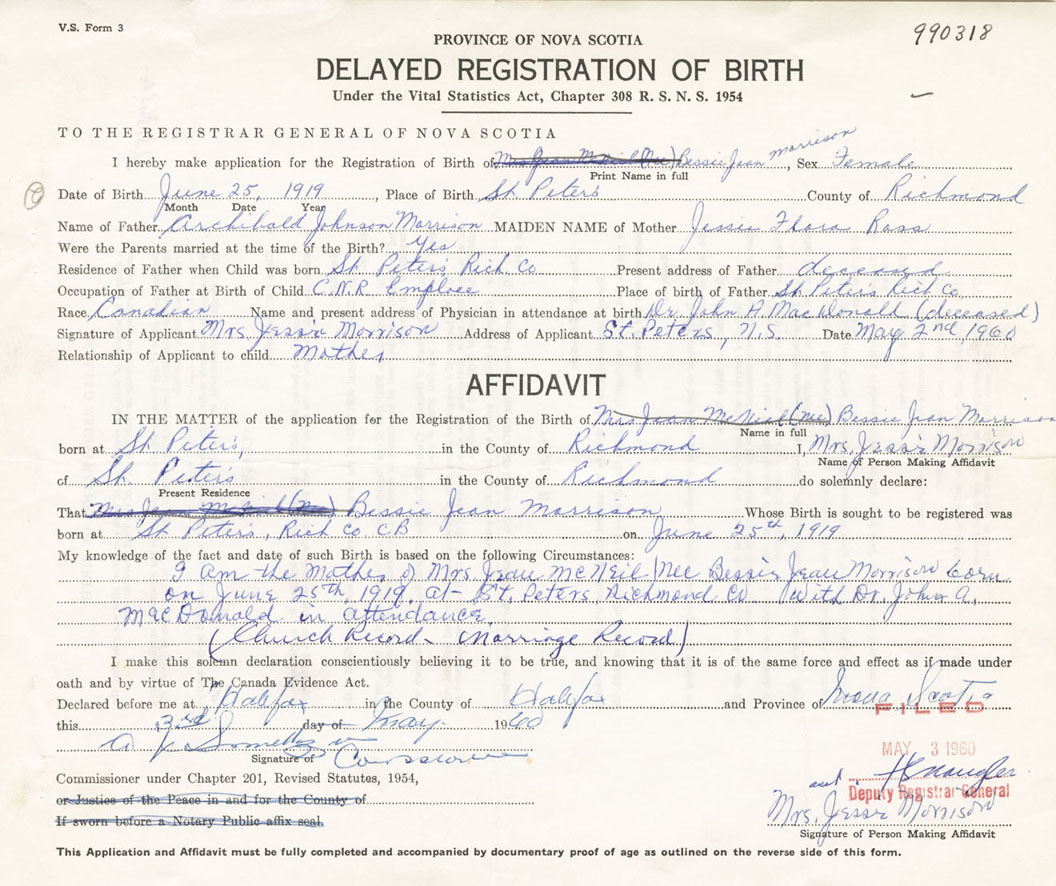 V.S. Form 3
990318
PROVINCE OF NOVA SCOTIA
DELAYED REGISTRATION OF BIRTH
Under the Vital Statistics Act, Chapter 308 R. S. N. S. 1954
TO THE REGISTRAR GENERAL OF NOVA SCOTIA
I hereby make application for the Registration of Birth of Mrs Jean McNeil (Nee) Bessie Jean Morrison, Sex Female
Print Name in full
Date of Birth June 25, 1919, Place of Birth St. Peter's County of Richmond
Month Date Year
Name of Father Archibald Johnson Morrison MAIDEN NAME of Mother Jessie Flora Ross
Were the Parents married at the time of the Birth? Yes
Residence of Father when Child was born St. Peter's Rich. Co Present address of Father deceased
Occupation of Father at Birth of Child C.N.R Employee Place of birth of Father St. Peter's Rich Co
Race Canadian Name and present address of Physician in attendance at birth Dr. John A MacDonald (deceased)
Signature of Applicant Mrs. Jessie Morrison Address of Applicant St. Peters, N.S. Date May 2nd, 1960
Relationship of Applicant to child Mother
AFFIDAVIT
IN THE MATTER of the application for the Registration of the Birth of Mrs Jean McNeil (nee) Bessie Jean Morrison
Name in full
born at St. Peter's, in the County of Richmond I, Mrs. Jessie Morrison
Name of Person Making Affidavit
of St. Peter's in the County of Richmond do solemnly declare:
Present Residence
That Mrs Jean McNeil (Nee) Bessie Jean Morrison Whose Birth is sought to be registered was
born at St. Peter's, Rich Co. C.B on June 25th, 1919
My knowledge of the fact and date of such Birth is based on the following Circumstances:
I am the Mother of Mrs. Jean McNeil (Nee Bessie Jean Morrison born
on June 25th, 1919. at St. Peters, Richmond Co with Dr. John A.
MacDonald in attendance.
(Church Record - Marriage Record)
I make this solemn declaration conscientiously believing it to be true, and knowing that it is of the same force and effect as if made under
oath and by virtue of The Canada Evidence Act.
Declared before me at Halifax in the County of Halifax and Province of Nova Scotia
FILED
this 3rd day of May 1960
MAY 3 1960
Signature of
Commissioner under Chapter 201, Revised Statutes, 1954,
and
Deputy Registrar General
or Justice of the Peace in and for the County of
Mrs. Jessie Morrison
If sworn before a Notary Public affix seal.
Signature of Person Making Affidavit
This Application and Affidavit must be fully completed and accompanied by documentary proof of age as outlined on the reverse side of this form.